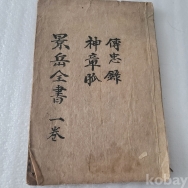 傳忠錄
神章脉
景岳全書 一卷
kobay